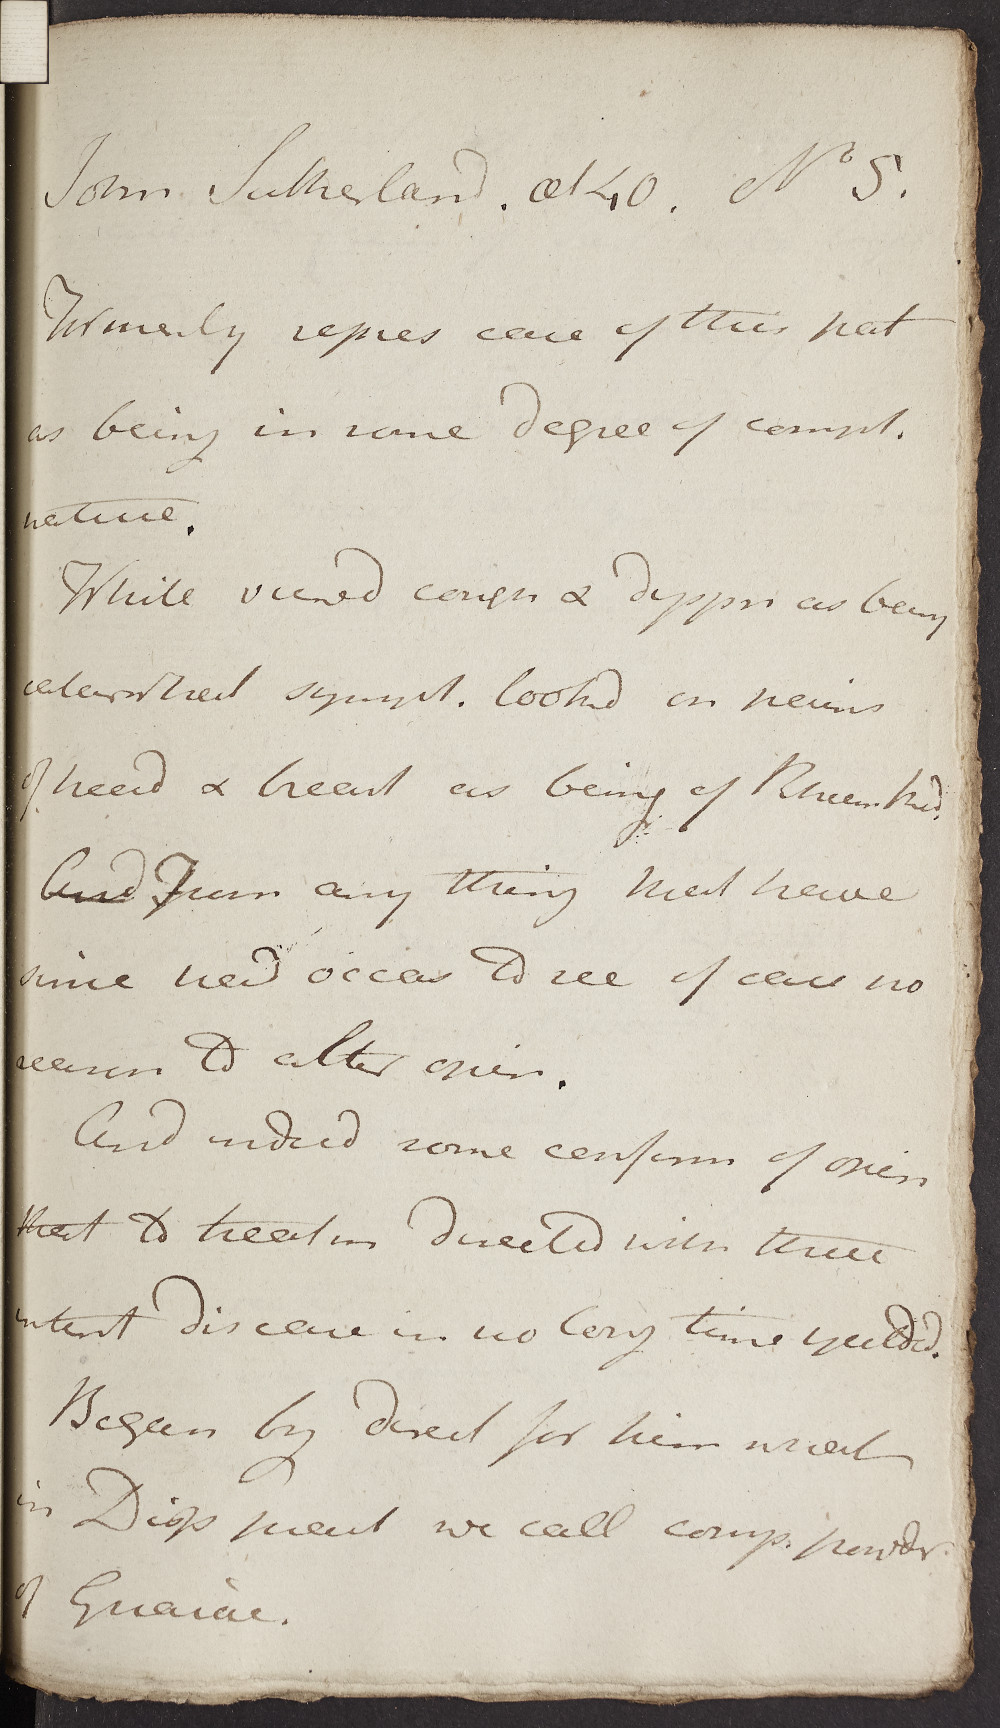 John Sutherland. æt 40. No 5.
Formerly repres case of this pat
as being in some degree of compl.
nature.
While viewd cough & dyspn as being
catarrhal sympt. lookd on pains
of head & breast as being of Rheum. kid.
And From any thing that have
since had occas to see of case no
reason to alter opin.
And indeed some confirm of opin
that to treatm directed with these
intent disease in no long time yielded.
Began by direct for him what
in Disp pract we call comp. powdr.
of Guaiac.